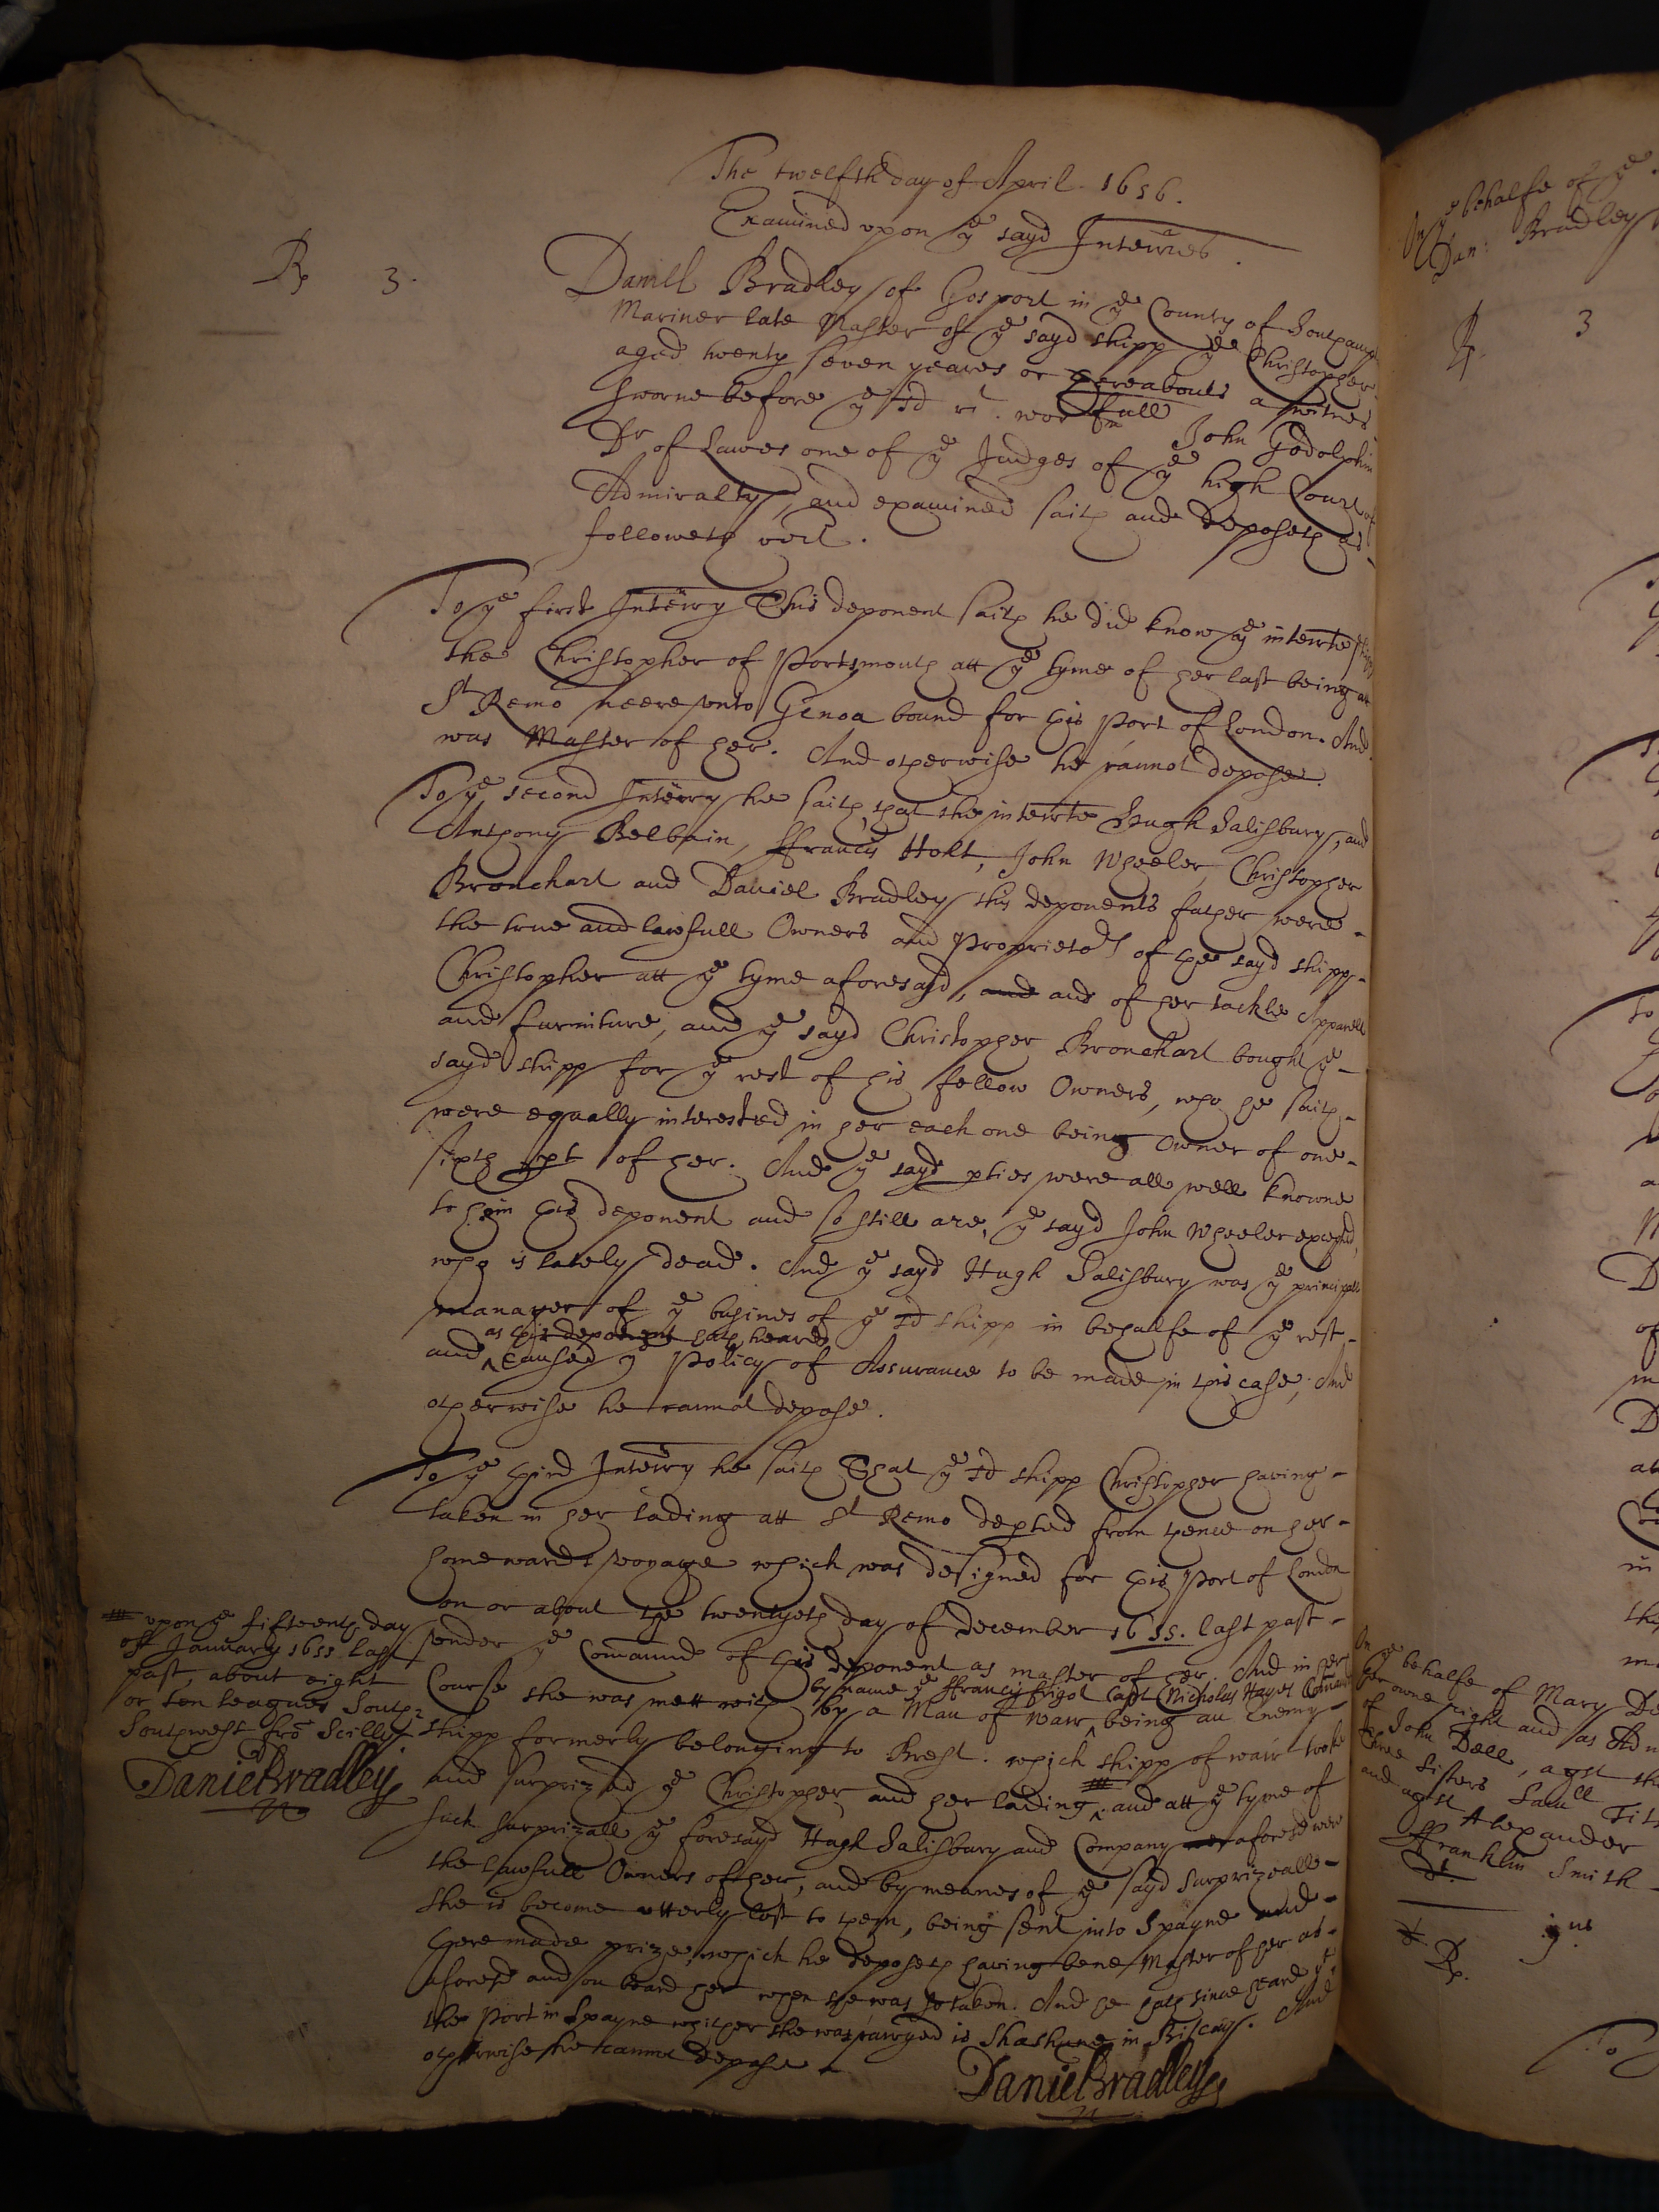 The twelfth day of April 1656.
Examined upon ye sayd Interries.
Rp 3.
Daniell Bradley of Gosport in ye County of Southampt
Mariner late Master of ye sayd shipp ye Christopher
aged twenty seven yeares or thereabouts a witnes
sworne before ye sd rt. worfull John Godolphin
Dr of Lawes one of ye Judges of ye high Court of
Admiralty, and examined saith and deposeth as
followeth vizt.
To ye first Interry This deponent saith he did know ye interrte shipp
the Christopher of Portsmouth att ye tyme of her last being at
St Remo neere vnto Genoa bound for this Port of London. And
was Master of her. And otherwise he cannot depose.
To ye second Interry he saith that the interrte Hugh Salisbury, and
Anthony Belbin, ffrancis Holt, John Wheeler, Christopher
Bronchart and Daniel Bradley this deponents father were
the true and lawfull Owners and Proprietors of the sayd shipp
Christopher att ye tyme aforesayd, and and of her tackle Apparell
and furniture, and ye sayd Christopher Bronchart bought ye
sayd shipp for ye rest of his fellow Owners, who he saith
were equally interested in her each one being Owner of one
sixth pt of her. And ye sayd pties were all well knowne
to him this deponent and so still are, ye sayd John Wheeler excepted,
who is lately dead. And ye sayd Hugh Salisbury was ye principall
manager of ye busines of ye sd shipp in behalfe of ye rest
as this deponent hath heard
and caused ye Policy of Assurance to be made in this case, And
otherwise he cannot depose.
To ye third Interry he saith That ye sd shipp Christopher having
taken in her lading att St Remo depted from thence on her
homewards voyage which was designed for this Port of London
on or about the twentyeth day of December 1655. last past
vnder ye Comaund of this deponent as master of her. And in her
by name ye ffrancis frigot Capt Nicholas Hayes Comandr
Course she was mett with by a Man of warr being an Enemy
shipp formerly belonging to Brest. which shipp of warr tooke
and surprized ye Christopher and her lading, and att ye tyme of
such surprizall ye foresayd Hugh Salisbury and Company aforesd were
the lawfull Owners of her, and by meanes of ye sayd surprizeall
she is become vtterly lost to them, being sent into Spayne and
there made prize, which he deposeth having bene Master of her as
aforesd and on board her when she was so taken. And he hath since heard yt
the Port in Spayne whither she was carryed is Shashune in Biscay. And
otherwise he cannot depose
Daniel Bradley
upon ye fifteenth day
of January 1655 last
past, about eight
or ten leagues South
Southwest fro Scilly
Daniel Bradley
On ye behalfe of ye
Dan: Bradley
Rp. 3
On ye behalfe of Mary
her owne right and as
of John Dell, agst
three sisters Saull
and agst Alexander
ffranklin Smith
Rp. jus